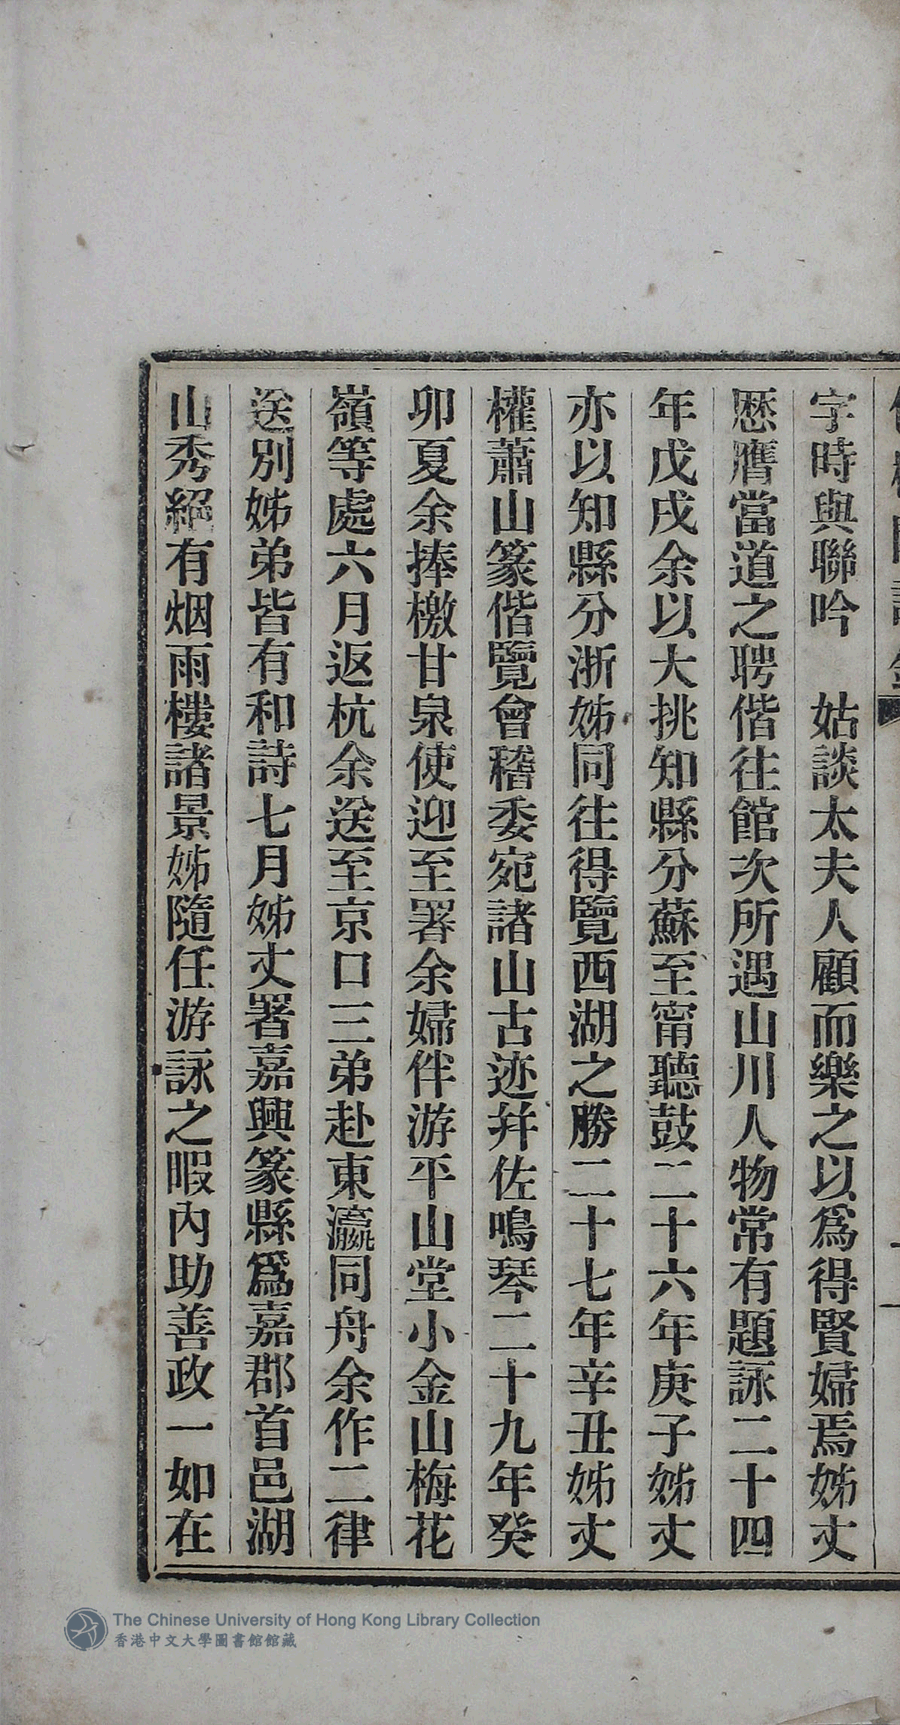 字時與聯吟　姑談太夫人顧而樂之以爲得賢婦焉姊丈
歷膺當道之聘偕往館次所遇山川人物常有題詠二十四
年戊戌余以大挑知縣分蘇至甯聽鼓二十六年庚子姊丈
亦以知縣分浙姊同往得覽西湖之勝二十七年辛丑姊丈
權蕭山篆偕覽會稽委宛諸山古迹幷佐鳴琴二十九年癸
卯夏余捧檄甘泉使迎至署余婦伴游平山堂小金山梅花
嶺等處六月返杭余送至京口三弟赴東瀛同舟余作二律
送別姊弟皆有和詩七月姊丈署嘉興篆縣爲嘉郡首邑湖
山秀絕有烟雨樓諸景姊隨任游詠之暇內助善政一如在
The Chinese University of Hong Kong Library Collection
香港中文大學圖書館館藏